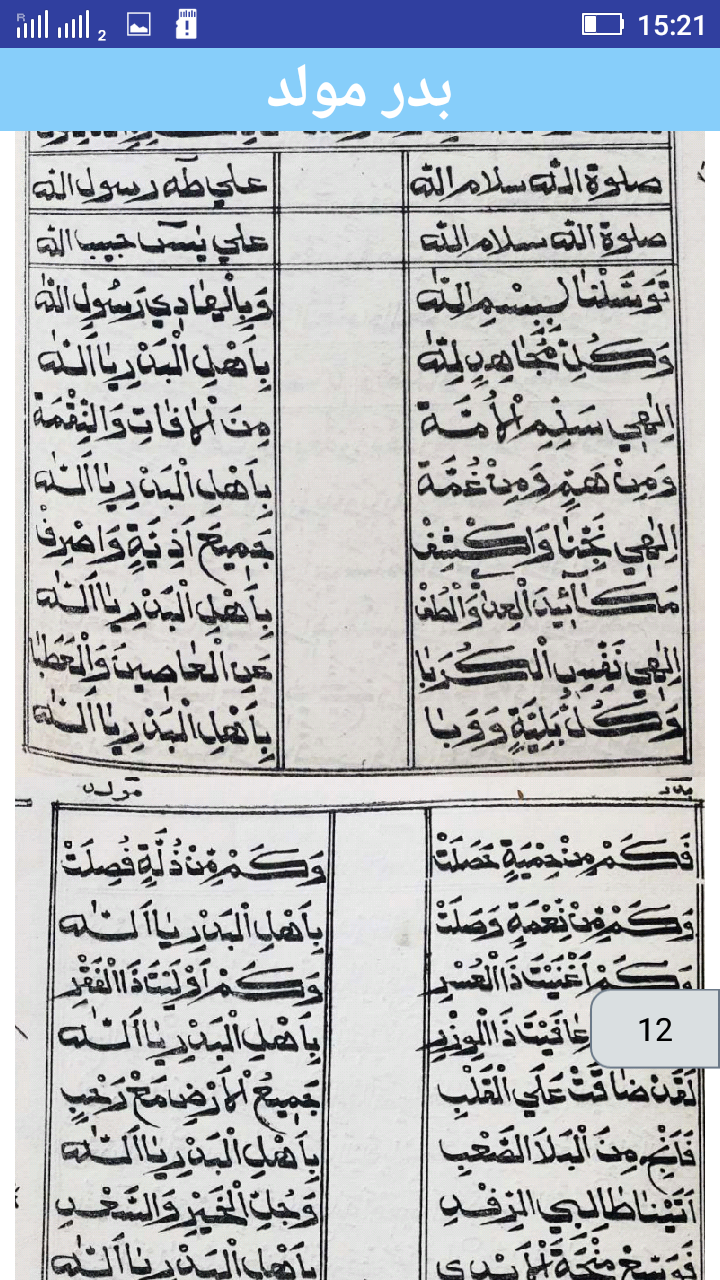 2 15:21
بدر مولد
صلوة الله سلام الله علي طه رسول الله
صلوة الله سلام الله علي يسٓ حبيب الله
تَوَسَّلْنَا بِبِسْمِ اللّٰه وَبِالْهَادِي رَسُولِ اللّٰه
وَكُلِّ مُجَاهِدٍ لِلّٰه بِاَهْلِ الْبَدْرِ يَا اَللّٰه
اِلٰهِي سَلِّمِ الْاُمَّة مِنَ الْاٰفَاتِ وَالنِّقْمَة
وَمِنْ هَمٍّ وَمِنْ غُمَّة بِاَهْلِ الْبَدْرِ يَا اَللّٰه
اِلٰهِي نَجِّنَا وَاكْشِفْ جَمِيعَ اَذِيَّةٍ وَاصْرِفْ
مَكَائِيدَ الْعِدَا وَالْطُفْ بِاَهْلِ الْبَدْرِ يَا اَللّٰه
اِلٰهِي نَفِّسِ الْكُرَبَا عَنِ الْعَاصِينَ وَالْعَطَبَا
وَكُلَّ بَلِيَّةٍ وَوَبَا بِاَهْلِ الْبَدْرِ يَا اَللّٰه
بدر مولد
فَكَمْ مِنْ رَحْمَةٍ حَصَلَتْ وَكَمْ مِنْ ذُلَّةٍ فُصِلَتْ
وَكَمْ مِنْ نِعْمَةٍ وَصَلَتْ بِاَهْلِ الْبَدْرِ يَا اَللّٰه
وَكَمْ اَغْنَيْتَ ذَا الْعُسْرِ وَكَمْ اَوْلَيْتَ ذَا الْفَقْرِ
عَافَيْتَ ذَا الْوِزْرِ بِاَهْلِ الْبَدْرِ يَا اَللّٰه
12
لَقَدْ ضَاقَتْ عَلَي الْقَلْبِ جَمِيعُ الْاَرْضِ مَعْ رَحْبٍ
فَانْجِ مِنَ الْبَلَا الصَّعْبِ بِاَهْلِ الْبَدْرِ يَا اَللّٰه
اَتَيْنَا طَالِبِي الرِّفْدِ وَجُلِّ الْخَيْرِ وَالسَّعْدِ
فَوَسِّعْ مِنْحَةَ الْاَيْدِي بِاَهْلِ الْبَدْرِ يَا اَللّٰه